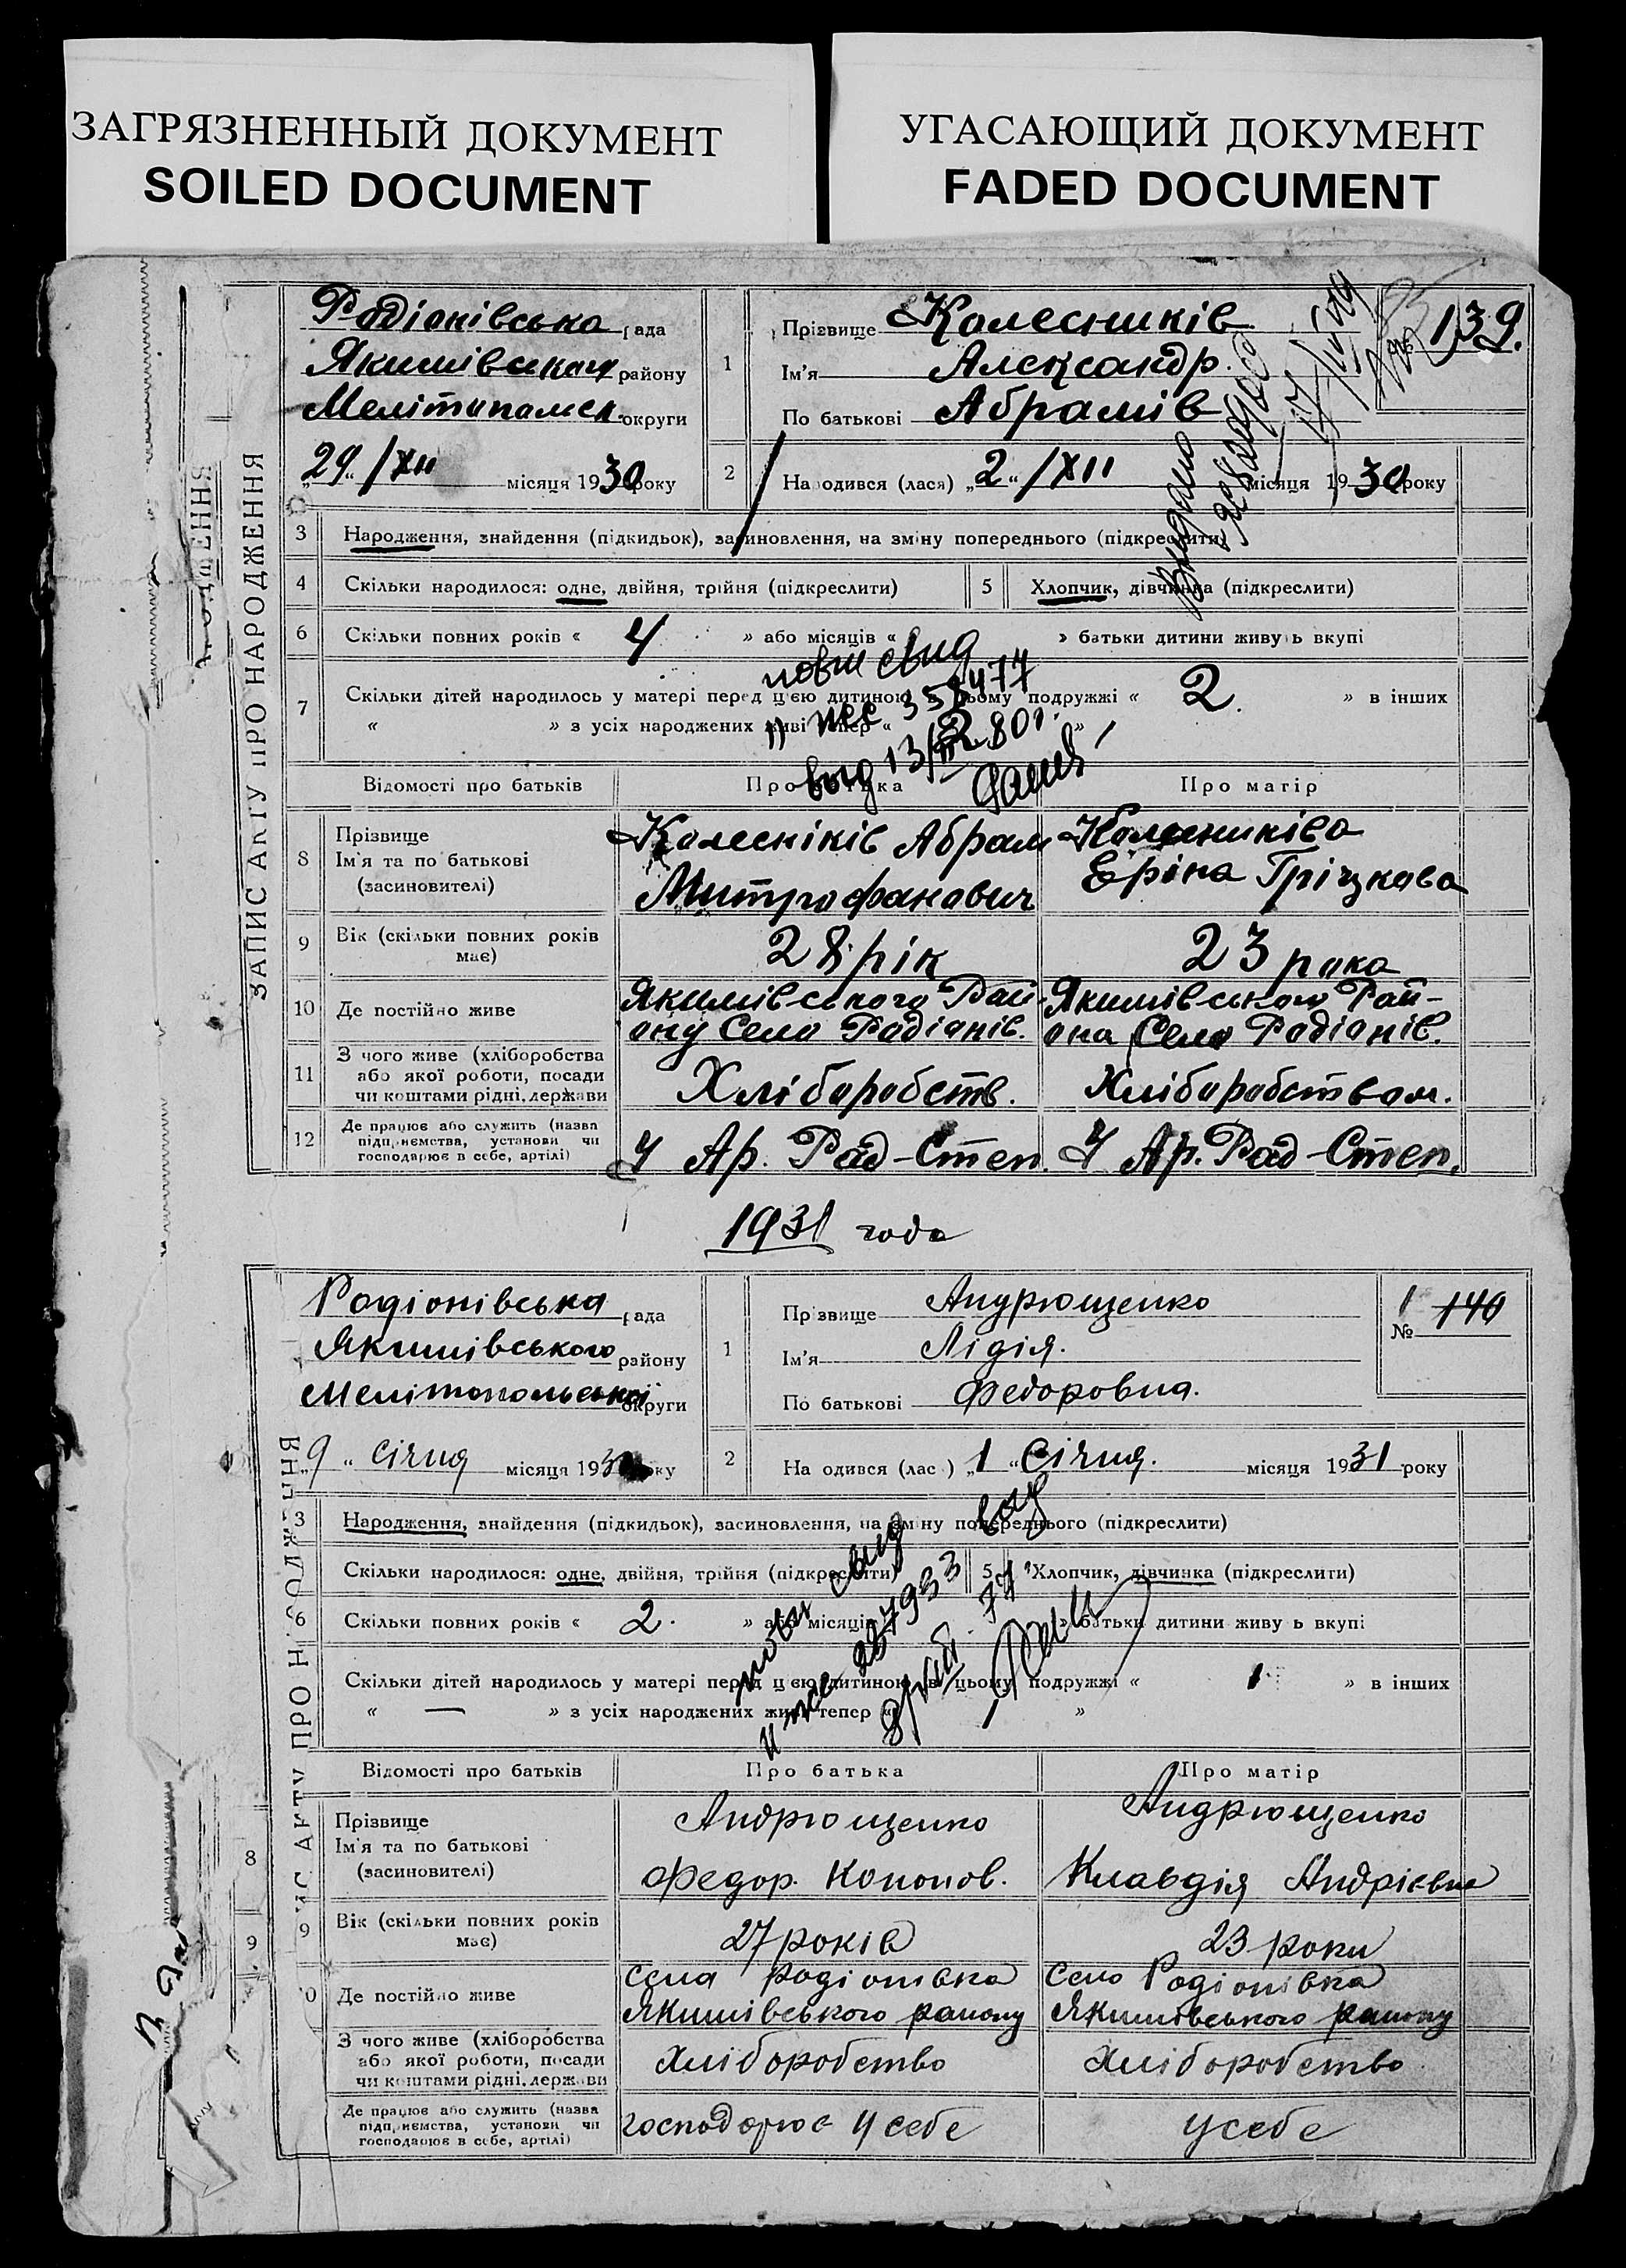 ЗАГРЯЗНЕННЫЙ ДОКУМЕНТ
SOILED DOCUMENT
УГАСАЮЩИЙ ДОКУМЕНТ
FADED DOCUMENT
ЗАПИС АКТУ ПРО НАРОДЖЕННЯ
Радіанівська рада
Якимівськаи району
Мелітопальск. округи
29 /XII місяця 1930 року
1 Прізвище Колесників
Ім'я Александр.
По батькові Абрамів
139.
2 Народився (лася) „2“ /XII місяця 1930 року
3 Народження, знайдення (підкидьок), засиновлення, на зміну попереднього (підкреслити)
4 Скільки народилося: одне, двійня, трійня (підкреслити) 5 Хлопчик, дівчинка (підкреслити)
6 Скільки повних років « 4 » або місяців « » батьки дитини живуть вкупі
7 Скільки дітей народилось у матері перед цією дитиною в цьому подружжі « 2. » в інших
« » з усіх народжених живі тепер « »
выд 13/
Відомості про батьків Про батька Про матір
8 Прізвище
Ім'я та по батькові
(засиновителі)
Колесніків Абрам
Митрофанович
Колесниківа
Еріна Гріцкава
9 Вік (скільки повних років має) 28 рік 23 рока
10 Де постійно живе
Якимівського Рай-
ону Село Радіанів.
Якимівського Рай-
она Село Радіанів.
11 З чого живе (хліборобства
або якої роботи, посади
чи коштами рідні, держави
Хліборобств. Хліборобством.
12 Де працює або служить (назва
підприємства, установи чи
господарює в себе, артілі)
У Ар. Рад-Степ. У Ар. Рад-Степ.
1931 года
Родіонівська рада
Якимівського району
Мелітопольської округи
„9“ січня місяця 193 року
1 Прізвище Андрющенко
Ім'я Лідія.
По батькові Федоровна.
№ 1 140
2 Народився (лас ) „1“ Січня. місяця 1931 року
3 Народження, знайдення (підкидьок), засиновлення, на зміну попереднього (підкреслити)
Скільки народилося: одне, двійня, трійня (підкреслити) 5 Хлопчик, дівчинка (підкреслити)
6 Скільки повних років « 2. » або місяців « » батьки дитини живуть вкупі
Скільки дітей народилось у матері перед цією дитиною в цьому подружжі « 1 » в інших
« — » з усіх народжених живі тепер « »
Відомості про батьків Про батька Про матір
8 Прізвище
Ім'я та по батькові
(засиновителі)
Андрющенко
Федор. Кононов.
Андрющенко
Клавдія Андрієвна
9 Вік (скільки повних років має) 27 років 23 роки
Де постійно живе
села Родіонівка
Якимівського району
село Родіонівка
Якимівського району
З чого живе (хліборобства
або якої роботи, посади
чи коштами рідні, держави
Хліборобство Хліборобство
Де працює або служить (назва
підприємства, установи чи
господарює в себе, артілі)
господорює у себе у себе